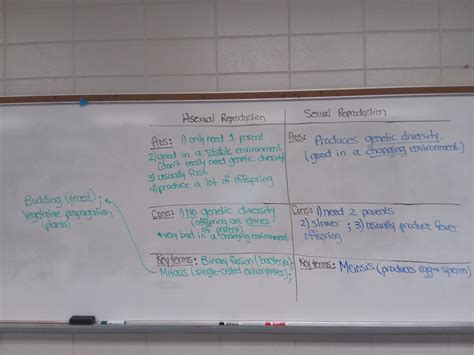 Asexual Reproduction
Pros: 1) only need 1 parent
2) good in a stable environment
(don't really need genetic diversity)
3) usually fast
4) produce a lot of offspring
Cons: 1) No genetic diversity
(offspring are clones
of parent)
*very bad in a changing environment
Key terms: Binary fission (bacteria);
(single-celled eukaryotes);
Budding (yeast);
Vegetative propagation
(plants)
Sexual Reproduction
Pros: Produces genetic diversity
(good in a changing environment)
Cons: 1) need 2 parents
2) slower ; 3) usually produce fewer
offspring
Key terms: Meiosis (produces egg + sperm)